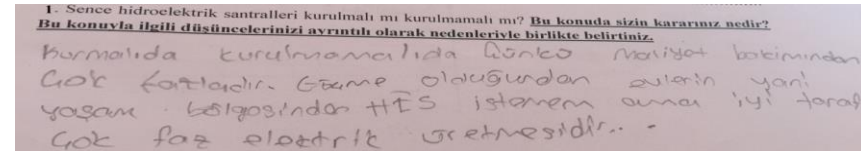 1- Sence hidroelektrik santralleri kurulmalı mı kurulmamalı mı? Bu konuda sizin kararınız nedir?
Bu konuyla ilgili düşüncelerinizi ayrıntılı olarak nedenleriyle birlikte belirtiniz.
Kurmalıda kurulmamalıda Çünkü Maliyet bakimindan
Çok fazladır. olduğundan evlerin yani
yaşam bölgesinden HES istemem ama iyi taraf
Çok faz elektrik üretmesidir..